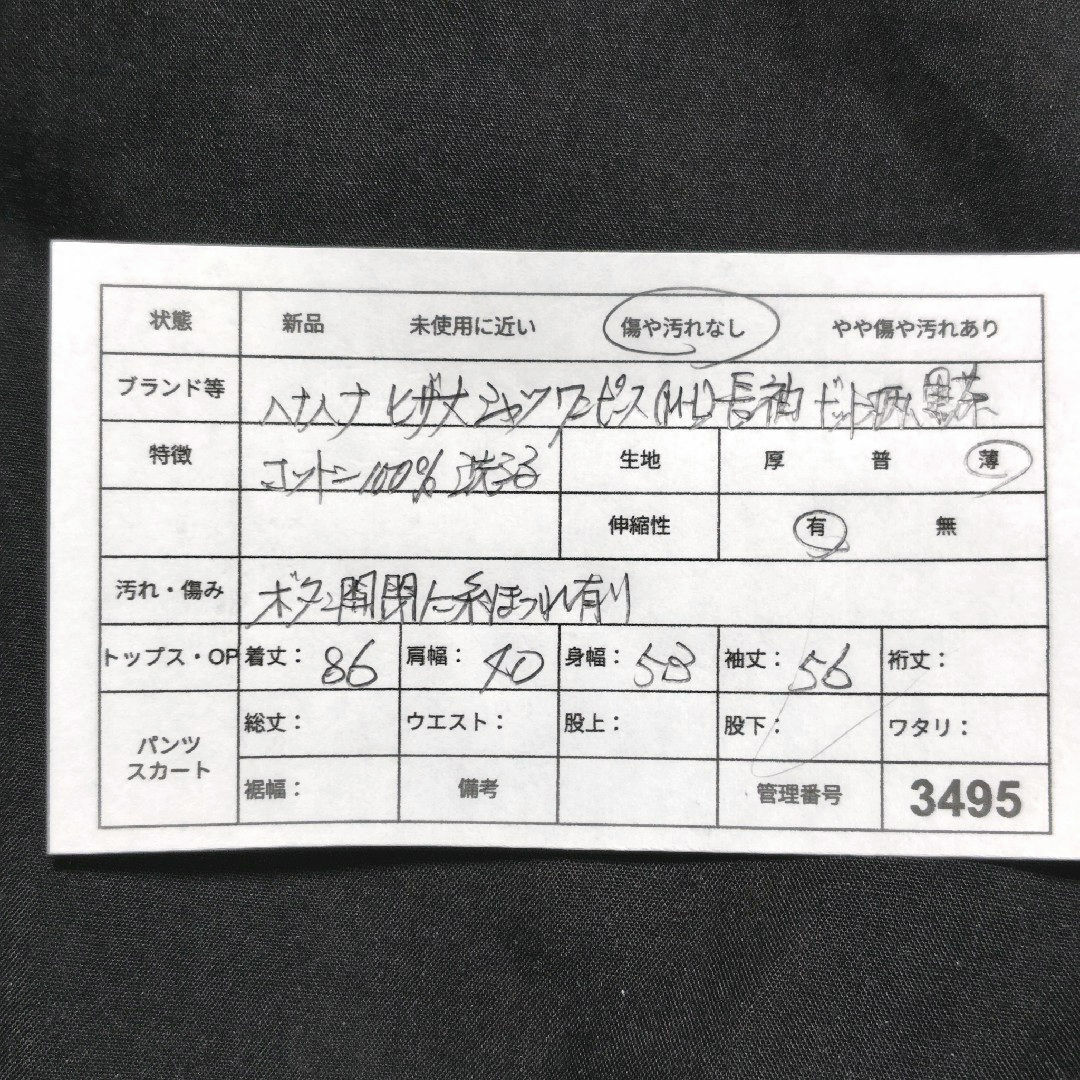 状態 新品 未使用に近い 傷や汚れなし やや傷や汚れあり
ブランド等 ハナハナ ヒザ丈 シャツワンピース(M-L)長袖 ドット柄 黒茶
特徴 コットン100% 洗える 生地 厚 普 薄
伸縮性 有 無
汚れ・傷み ボタン開閉に糸ほつれ有り
トップス・OP 着丈: 86 肩幅: 40 身幅: 53 袖丈: 56 裄丈:
パンツ スカート 総丈: ウエスト: 股上: 股下: ワタリ:
裾幅: 備考 管理番号 3495